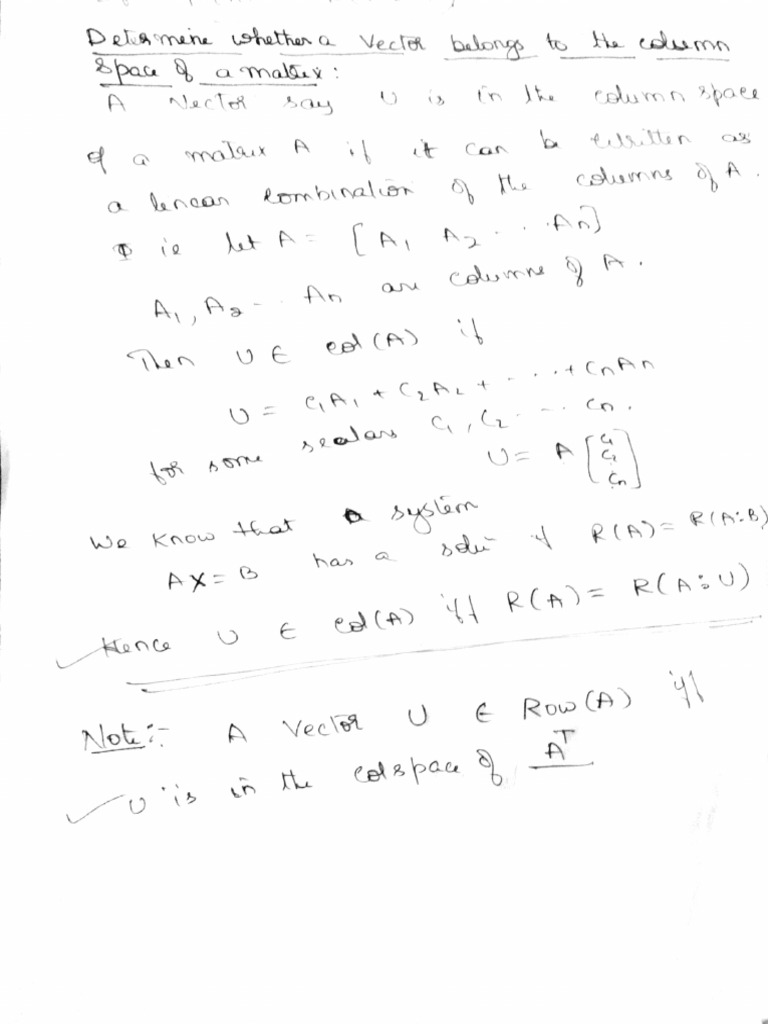 Determine whether a vector belongs to the column
space of a matrix:
A vector say U is in the column space
of a matrix A if it can be written as
a linear combination of the columns of A.
ie let A = [A1 A2 . . . An]
A1, A2 - . . An are columns of A.
Then U ∈ col(A) if
U = C1A1 + C2A2 + - . . . + CnAn
for some scalars C1, C2 . . . Cn.
U = A [C1 C2 Cn]
We know that a system
AX = B has a solu if R(A) = R(A:B)
Hence U ∈ col(A) iff R(A) = R(A:U)
Note:- A vector U ∈ Row(A) iff
U is in the colspace of A^T